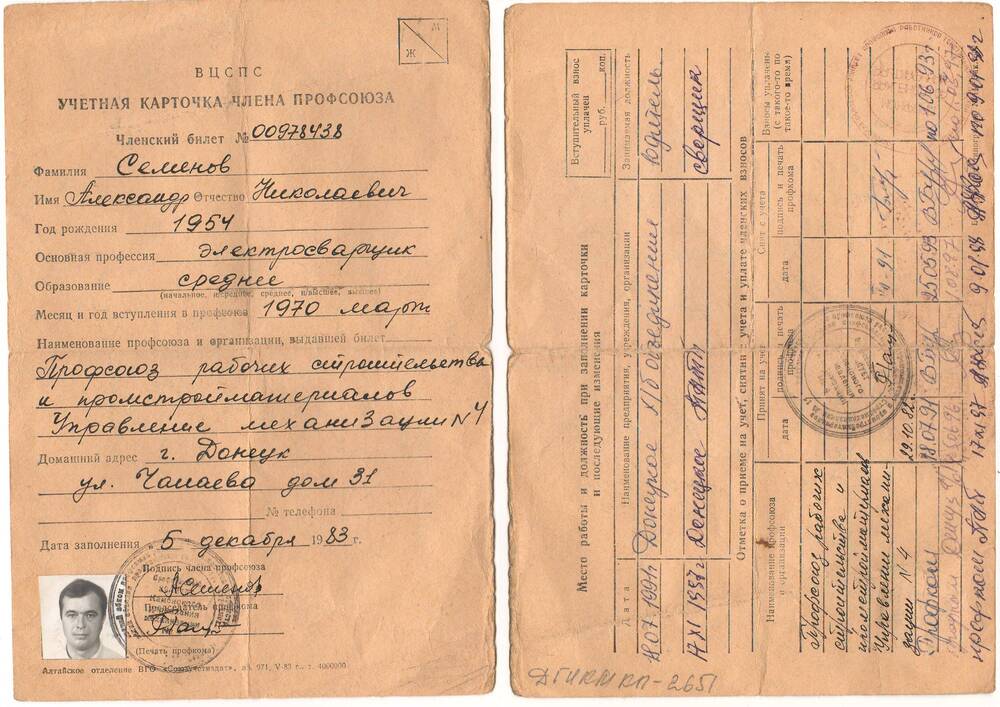 М
Ж
ВЦСПС
УЧЕТНАЯ КАРТОЧКА ЧЛЕНА ПРОФСОЮЗА
Членский билет № 00978438
Фамилия Семенов
Имя Александр Отчество Николаевич
Год рождения 1954
Основная профессия электросварщик
Образование среднее
(начальное, н/среднее, среднее, н/высшее, высшее)
Месяц и год вступления в профсоюз 1970 март
Наименование профсоюза и организации, выдавшей билет
Профсоюз рабочих строительства
и промстройматериалов
Управление механизации №4
Домашний адрес г. Донецк
ул. Чапаева дом 31
№ телефона
Дата заполнения 5 декабря 1983 г.
Подпись члена профсоюза
Председатель профкома
(Печать профкома)
Алтайское отделение ВГО «Союзучетиздат», 971, V-83 г., т. 4000000
Вступительный взнос
уплачен
руб. коп.
Место работы и должность при заполнении карточки
и последующие изменения
Дата
Наименование предприятия, учреждения, организации
Занимаемая должность
18.07.1991 Донецкое х/б объединение
17 XI 1997г Донецкое сварщик
Отметка о приеме на учет, снятии с учета и уплате членских взносов
Наименование профсоюза
и организации
Принят на учет
дата
подпись и печать
профкома
Снят с учета
дата
подпись и печать
профкома
Взносы уплачены
(с такого-то по
такое-то время)
Профсоюз рабочих
строительства и
промстройматериалов
Управлении механи-
зации №4
29.10.82
18.07.91
25.05.93
по 1.06.93г
профком
17.11.97
9.01.98
по 9.01.98г
ДГИКМ КП-2651